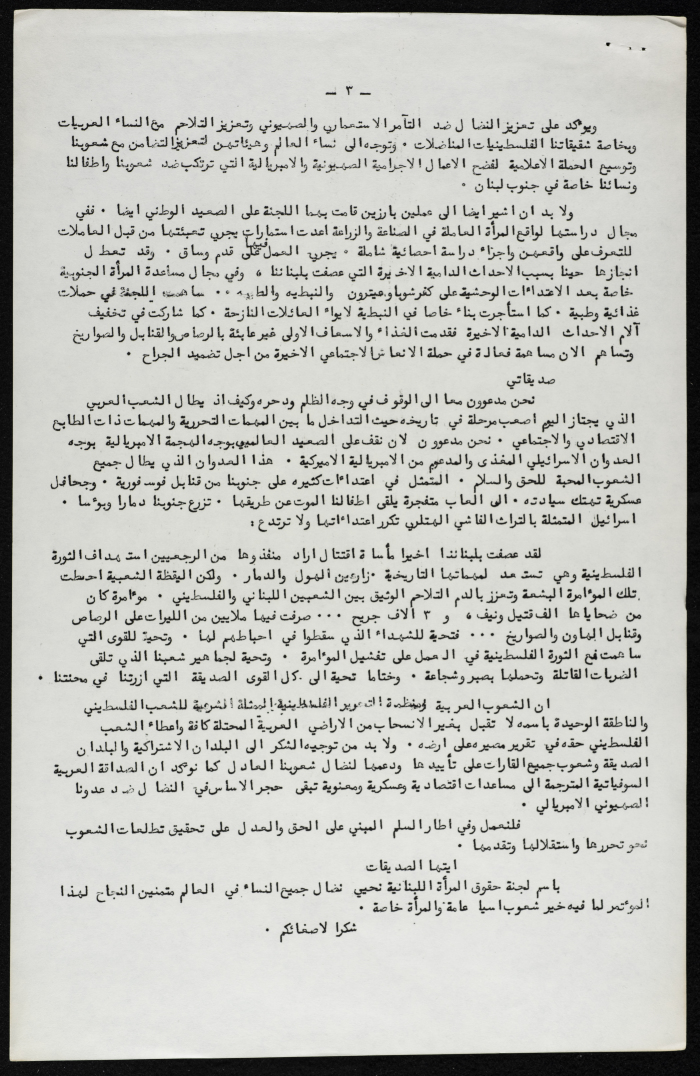 – ٣ –
ويؤكد على تعزيز النضال ضد التآمر الاستعماري والصهيوني وتعزيز التلاحم مع النساء العربيات
وبخاصة شقيقاتنا الفلسطينيات المناضلات ٠ وتوجه الى نساء العالم وهيئاتهن لتعزيز التضامن مع شعوبنا
وتوسيع الحملة الاعلامية لفضح الاعمال الاجرامية الصهيونية والامبريالية التي ترتكب ضد شعوبنا واطفالنا
ونسائنا خاصة في جنوب لبنان ٠
ولا بد ان اشير ايضا الى عملين بارزين قامت بهما اللجنة على الصعيد الوطني ايضا ٠ ففي
مجال دراستها لواقع المرأة العاملة في الصناعة والزراعة اعدت استمارات يجري تعبئتها من قبل العاملات
للتعرف على واقعهن واجراء دراسة احصائية شاملة ٠ يجري العمل فيها على قدم وساق ٠ وقد تعطل
انجازها حينا بسبب الاحداث الدامية الاخيرة التي عصفت بلبناننا ، وفي مجال مساعدة المرأة الجنوبية
خاصة بعد الاعتداءات الوحشية على كفرشوبا وعيترون والنبطيه والطيبه ٠٠ ساهمت اللجنة في حملات
غذائية وطبية ٠ كما استأجرت بناء خاصا في النبطية لايواء العائلات النازحة ٠ كما شاركت في تخفيف
آلام الاحداث الدامية الاخيرة فقدمت الغذاء والاسعاف الاولى غير عابئة بالرصاص والقنابل والصواريخ
وتساهم الان مساهمة فعالة في حملة الانعاش الاجتماعي الاخيرة من اجل تضميد الجراح ٠
صديقاتي
نحن مدعوون معا الى الوقوف في وجه الظلم ودحره وكيف اذ يطال الشعب العربي
الذي يجتاز اليوم اصعب مرحلة في تاريخه حيث التداخل ما بين المهمات التحررية والمهمات ذات الطابع
الاقتصادي والاجتماعي ٠ نحن مدعوون لان نقف على الصعيد العالمي بوجه الهجمة الامبريالية بوجه
العدوان الاسرائيلي المغذى والمدعوم من الامبريالية الاميركية ٠ هذا العدوان الذي يطال جميع
الشعوب المحبة للحق والسلام ٠ المتمثل في اعتداءات كثيره على جنوبنا من قنابل فوسفورية ٠ وجحافل
عسكرية تهتك سيادته ٠ الى العاب متفجرة يلقى اطفالنا الموت عن طريقها ٠ تزرع جنوبنا دمارا وبؤسا ٠
اسرائيل المتمثلة بالتراث الفاشي الهتلري تكرر اعتداءاتها ولا ترتدع :
لقد عصفت بلبناننا اخيرا مأساة اقتتال اراد منفذوها من الرجعيين استهداف الثورة
الفلسطينية وهي تستعد لمهماتها التاريخية ٠ زارعين الهول والدمار ٠ ولكن اليقظة الشعبية احبطت
تلك المؤامرة البشعة وتعزز بالدم التلاحم الوثيق بين الشعبين اللبناني والفلسطيني ٠ مؤامرة كان
من ضحاياها الف قتيل ونيف ، و ٣ الاف جريح ٠٠٠ صرفت فيها ملايين من الليرات على الرصاص
وقنابل الهاون والصواريخ ٠٠٠ فتحية للشهداء الذي سقطوا في احباطهم لها ٠ وتحية للقوى التي
ساهمت مع الثورة الفلسطينية في العمل على تفشيل المؤامرة ٠ وتحية لجماهير شعبنا الذي تلقى
الضربات القاتلة وتحملها بصبر وشجاعة ٠ وختاما تحية الى كل القوى الصديقة التي ازرتنا في محنتنا ٠
ان الشعوب العربية ومنظمة التحرير الفلسطينية الممثلة الشرعية للشعب الفلسطيني
والناطقة الوحيدة باسمه لا تقبل بغير الانسحاب من الاراضي العربية المحتلة كافة واعطاء الشعب
الفلسطيني حقه في تقرير مصيره على ارضه ٠ ولا بد من توجيه الشكر الى البلدان الاشتراكية والبلدان
الصديقة وشعوب جميع القارات على تأييدها ودعمها لنضال شعوبنا العادل كما نؤكد ان الصداقة العربية
السوفياتية المترجمة الى مساعدات اقتصادية وعسكرية ومعنوية تبقى حجر الاساس في النضال ضد عدونا
الصهيوني الامبريالي ٠
فلنعمل وفي اطار السلم المبني على الحق والعدل على تحقيق تطلعات الشعوب
نحو تحررها واستقلالها وتقدمها ٠
ايتها الصديقات
باسم لجنة حقوق المرأة اللبنانية نحيي نضال جميع النساء في العالم متمنين النجاح لهذا
المؤتمر لما فيه خير شعوب اسيا عامة والمرأة خاصة ٠
شكرا لاصغائكم ٠